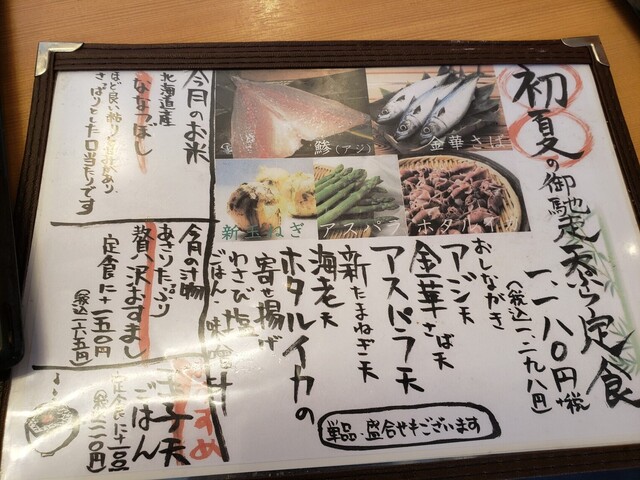 初夏の御馳走天ぷら定食
一、一八〇円+税
(税込一、二九八円)
鯵(アジ)
金華さば
新玉ねぎ
アスパラ
ホタルイカ
おしながき
アジ天
金華さば天
アスパラ天
新たまねぎ天
海老天
ホタルイカの
寄せ揚げ
わさび塩
ごはん・味噌汁
単品・盛合せもございます
今月のお米
北海道産
ななつぼし
ほど良い粘りと甘みがあり
さっぱりとした口当たりです
今月の汁物
あさりたっぷり
贅沢おすまし
定食に+一五〇円
(税込一六五円)
おすすめ
玉子天
ごはん